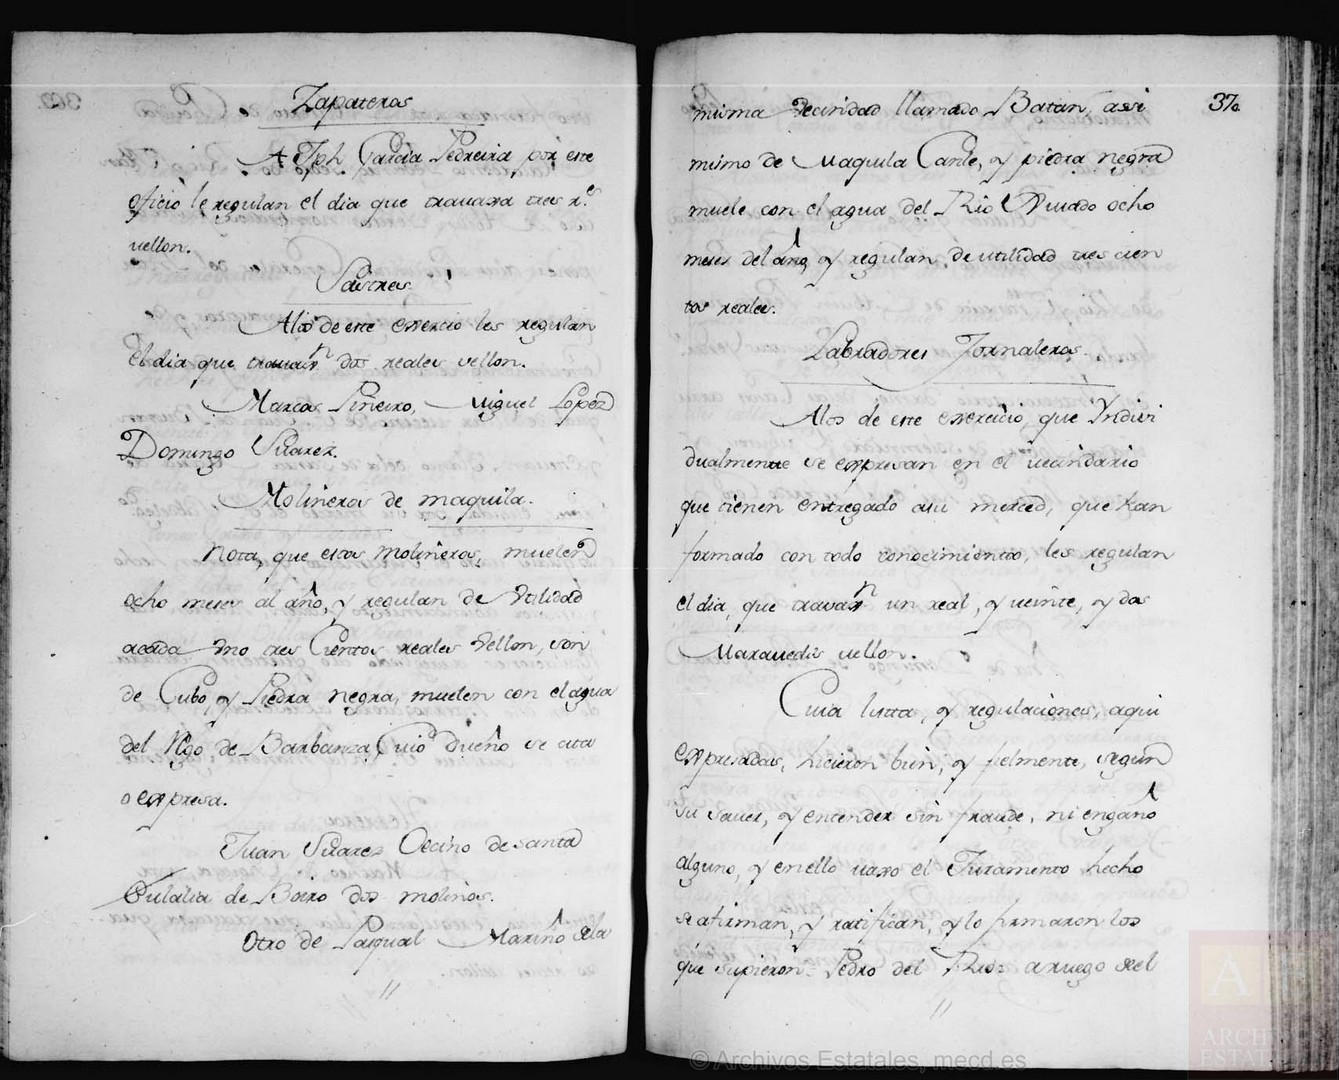 Zapateros
A Jph. Garcia Pedreira por este
oficio le regulan el dia que travaxa tres r.s
vellon.
Sastres
Alos de este exercicio les regulan
el dia que travan dos reales vellon.
Marcos Piñeiro, Miguel Lopez
Domingo Suarez.
Molineros de maquila.
Nota, que estos Molineros, muelen
ocho meses al año, y regulan de Utilidad
acada Uno tres Cientos reales Vellon, son
de Cubo, y Piedra negra, muelen con el agua
del de Barbanza, Cuio dueño se cita
o expresa.
Juan Suarez Vecino de santa
Eulalia de Boiro dos molinos.
Otro de Pasqual Mariño dela
37
misma Vecindad llamado Batan, assi
mismo de Maquila Cante, y piedra negra
muele con el agua del Rio ocho
meses del año, y regulan de utilidad tres cien
tos reales.
Labradores Jornaleros.
Alos de este exercicio, que Yndivi
dualmente se expresan en el vecindario
que tienen entregado asu merced, que han
formado con todo conocimiento, les regulan
el dia, que travan un real, y veinte, y dos
Maravedis vellon.
Cuia lista, y regulaciones, aqui
expresadas, hicieron bien, y fielmente, segun
su saver, y entender sin fraude, ni engaño
alguno, y en ello vaxo el Juramento hecho
se afirman, y ratifican, y lo firmaron los
que supieron = Pedro del Rio = aruego del
© Archivos Estatales, mecd.es
ARCHIVOS
ESTATALES